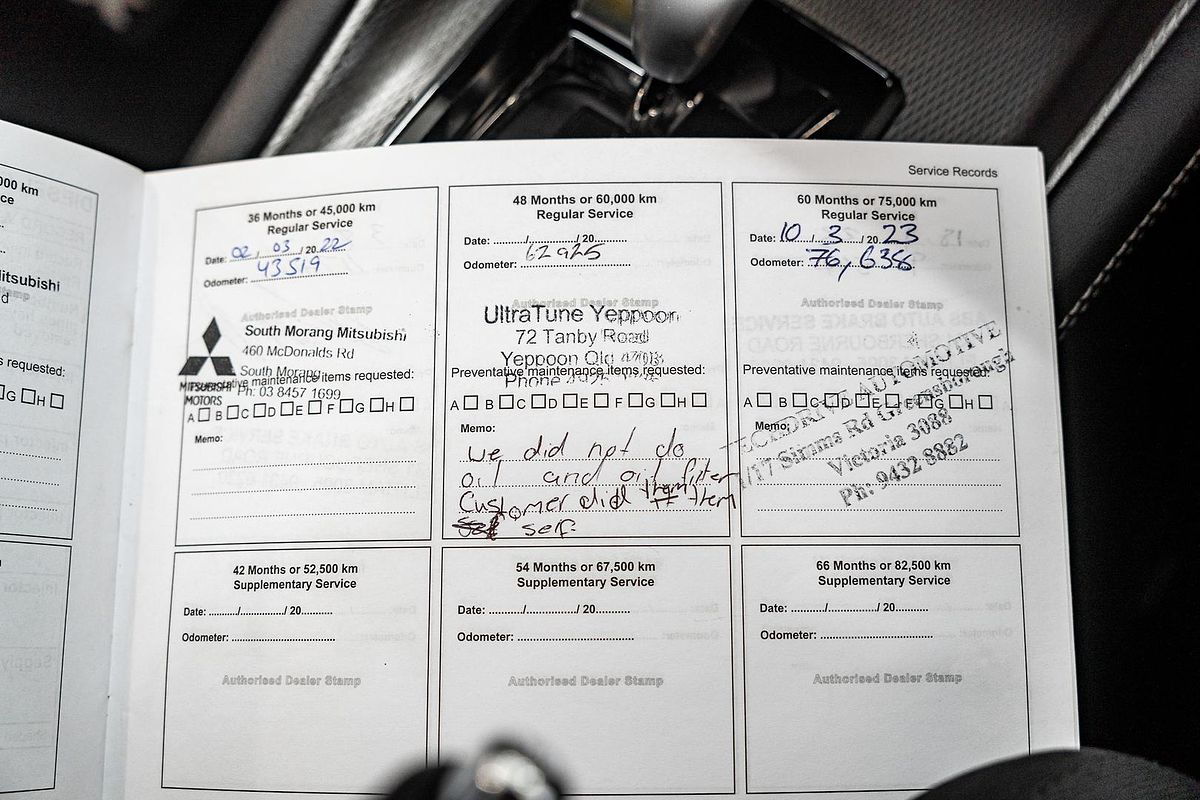 Service Records
000 km
ce
Mitsubishi
d
s requested:
G H
36 Months or 45,000 km
Regular Service
Date: 02 / 03 / 20 22
Odometer: 43519
Authorised Dealer Stamp
South Morang Mitsubishi
460 McDonalds Rd
South Morang
Preventative maintenance items requested:
MITSUBISHI Ph: 03 8457 1699
MOTORS
A B C D E F G H
Memo:
48 Months or 60,000 km
Regular Service
Date: / / 20
Odometer: 62925
Authorised Dealer Stamp
UltraTune Yeppoon
72 Tanby Road
Yeppoon Qld
Preventative maintenance items requested:
Phone
A B C D E F G H
Memo:
we did not do
oil and oil filter
Customer did them
self
60 Months or 75,000 km
Regular Service
Date: 10 / 3 / 20 23
Odometer: 76,636
Authorised Dealer Stamp
Preventative maintenance items requested:
A B C D E F G H
Memo:
TECHDRIVE AUTOMOTIVE
1/17 Simms Rd Greensborough
Victoria 3088
Ph: 9432 8882
42 Months or 52,500 km
Supplementary Service
Date: / / 20
Odometer:
Authorised Dealer Stamp
54 Months or 67,500 km
Supplementary Service
Date: / / 20
Odometer:
Authorised Dealer Stamp
66 Months or 82,500 km
Supplementary Service
Date: / / 20
Odometer:
Authorised Dealer Stamp